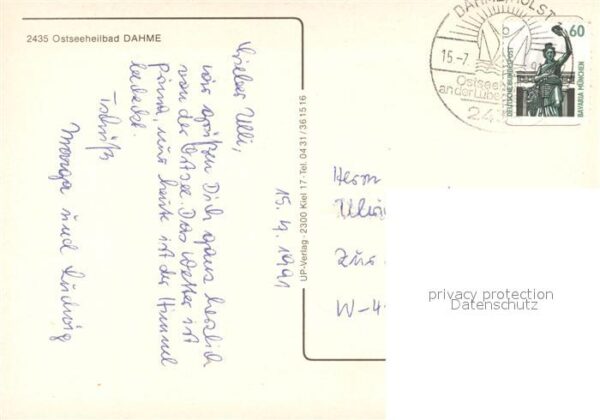 2435 Ostseeheilbad DAHME
Lieber Ulli,
wir grüßen Dich ganz herzlich
von der Ostsee. Das Wetter ist
prima, nur heute ist der Himmel
bedeckt.
Tschüß
Marga und Ludwig
15.7.1991
UP-Verlag · 2300 Kiel 17 · Tel. 0431/361516
DAHME, HOLST
15.-7.
Ostsee
an der Lüb
24
60
DEUTSCHE BUNDESPOST
BAVARIA MÜNCHEN
Herrn
Ulri
Zur
W-4
privacy protection
Datenschutz